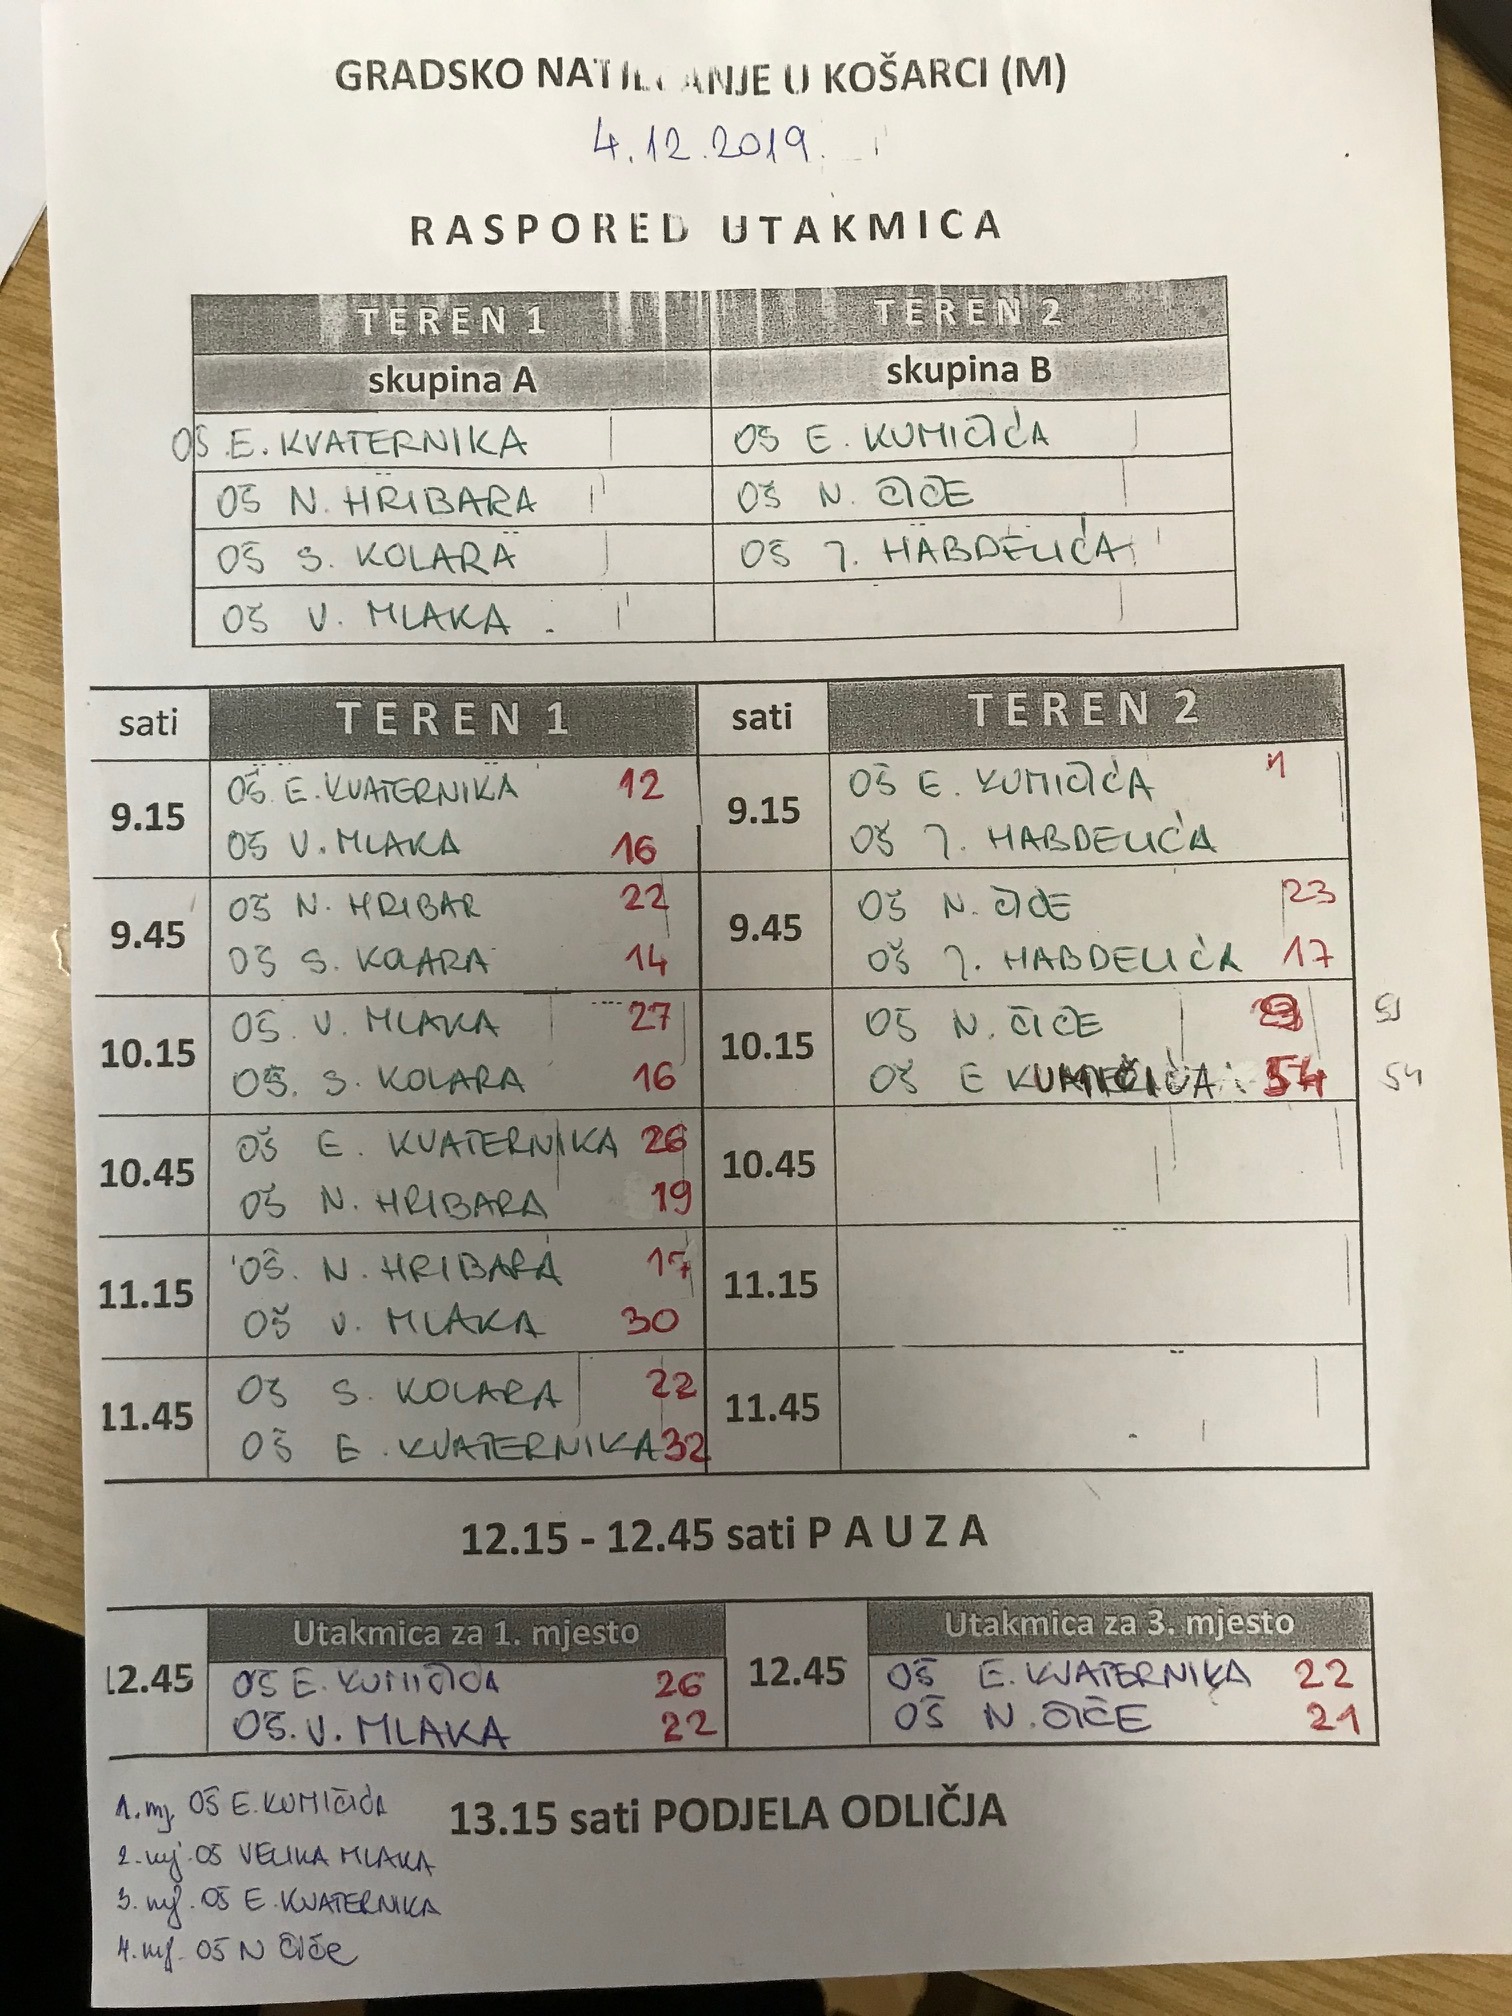 GRADSKO NATJECANJE U KOŠARCI (M)
4.12.2019.
RASPORED UTAKMICA
TEREN 1 TEREN 2
skupina A skupina B
OŠ E. KVATERNIKA OŠ E. KUMIČIĆA
OŠ N. HRIBARA OŠ N. ČIČE
OŠ S. KOLARA OŠ J. HABDELIĆA
OŠ V. MLAKA
sati TEREN 1 sati TEREN 2
9.15 OŠ E. KVATERNIKA 12 9.15 OŠ E. KUMIČIĆA 1
OŠ V. MLAKA 16 OŠ J. HABDELIĆA
9.45 OŠ N. HRIBAR 22 9.45 OŠ N. ČIČE 23
OŠ S. KOLARA 14 OŠ J. HABDELIĆA 17
10.15 OŠ V. MLAKA 27 10.15 OŠ N. ČIČE
OŠ. S. KOLARA 16 OŠ E KUMIČIĆA 54 54
10.45 OŠ E. KVATERNIKA 26 10.45
OŠ N. HRIBARA 19
11.15 OŠ. N. HRIBARA 17 11.15
OŠ V. MLAKA 30
11.45 OŠ S. KOLARA 22 11.45
OŠ E. KVATERNIKA 32
12.15 - 12.45 sati PAUZA
Utakmica za 1. mjesto Utakmica za 3. mjesto
12.45 OŠ E. KUMIČIĆA 26 12.45 OŠ E. KVATERNIKA 22
OŠ. V. MLAKA 22 OŠ N. ČIČE 21
13.15 sati PODJELA ODLIČJA
1. mj. OŠ E. KUMIČIĆA
2. mj. OŠ VELIKA MLAKA
3. mj. OŠ E. KVATERNIKA
4. mj. OŠ N Čiče